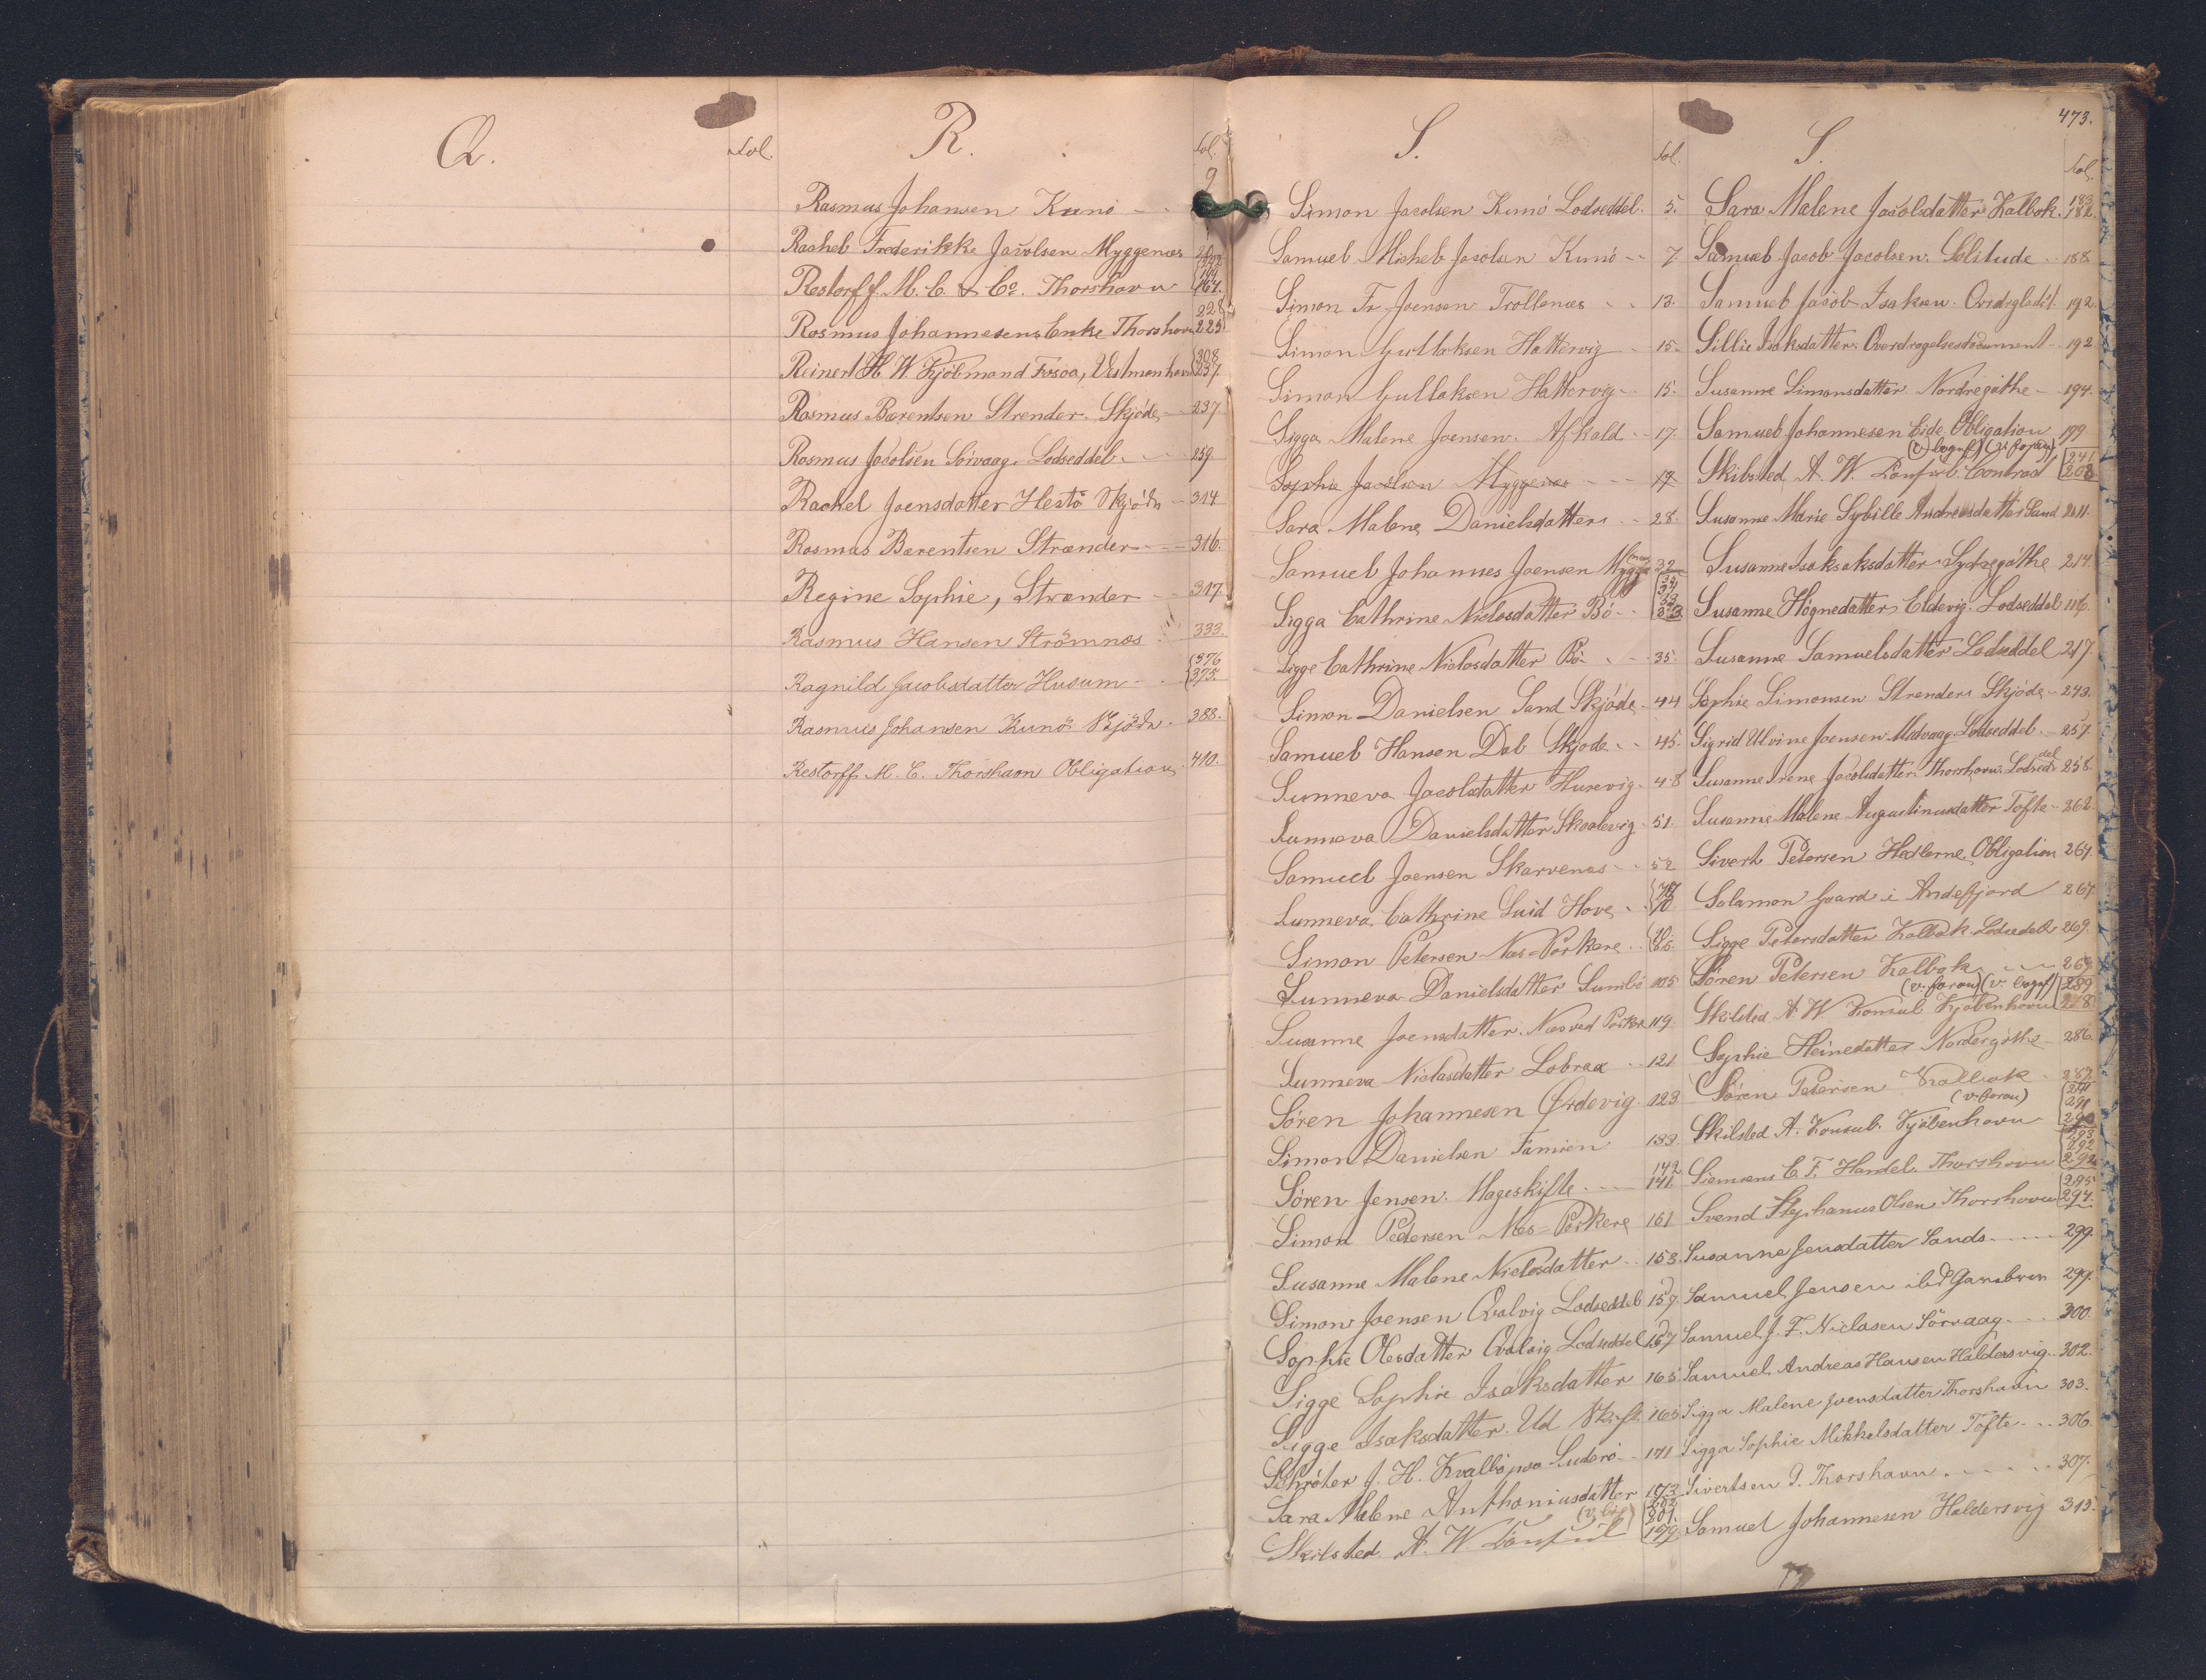 Q.
Fol.
R.
Fol.
Rasmus Johansen Kunö 9
Rachel Frederikke Jacobsen Myggenæs
Restorff M. C. & Co. Thorshavn
Rasmus Johannesens Enke Thorshavn 228 225
Reinert H. W. Kjöbmand Vestmanhavn 308 237.
Rasmus Barentsen Strender. Skjöde 237.
Rasmus Jacobsen Sörvaag. Lodseddel 259
Rachel Joensdatter Hestö Skjöde 314
Rasmus Barentsen Strænder 316.
Regine Sophie, Strænder 317
Rasmus Hansen Strömnæs 333.
Ragnild Jacobsdatter Husum 376 375.
Rasmus Johansen Kunö Skjöde 388.
Restorff M. C. Thorshavn Obligation 410.
473.
S.
Fol.
Simon Jacobsen Kunö Lodseddel. 5.
Samuel Michel Jacobsen Kunö 7
Simon Fr. Joensen Trollenæs 13.
Simon Guttaksen Hattervig 15.
Simon Guttaksen Hattervig 15.
Sigga Malene Joensen. Afkald 17.
Sophie Jacobsen Myggenæs 17
Sara Malene Danielsdatter 28.
Samuel Johannes Joensen Mygge(næs) 32
Sigga Cathrine Niclasdatter Bö 33
Sigge Cathrine Niclasdatter Bö 35.
Simon Danielsen Sand Skjöde 44
Samuel Hansen Dal Skjode 45.
Sunneva Jacobsdatter Husevig 48
Sunneva Danielsdatter Skaalevig 51.
Samuel Joensen Skarvenæs 52
Sunneva Cathrine Luid Hove 70
Simon Petersen Næs=Porkere
Sunneva Danielsdatter Sumbö 105
Susanne Joensdatter. Næs ved Porkere 119.
Sunneva Niclasdatter Lobraa 121
Sören Johannesen Ørdevig. 123.
Simon Danielsen Famien 133.
Sören Jensen. Mageskifte 142 141.
Simon Pedersen Næs=Porkere 151
Susanne Malene Niclasdatter 153.
Simon Joensen Qvalvig Lodseddel 157.
Sophie Olesdatter Qvalvig Lodseddel 157
Sigge Sophie Isaksdatter 165
Sigge Isaksdatter. Ud Skift. 165
Schröter J. H. Kvalbö paa Suderö 171
Sara Malene Anthoniusdatter 173
Skilsted A. W. Konsul 202 201. 179.
S.
Fol.
Sara Malene Jacobsdatter Kalbak. 183 182.
Samuel Jacob Jacobsen. Solitude 188
Samuel Jacob Isaksen. 192.
Sillie Isaksdatter. Overdragelsesdocument 192
Susanne Simonsdatter Nordregöthe 194.
Samuel Johannesen Eide. Obligation 199
Skibsted A. W. Konsul. Contract 241 208
Susanne Marie Sybille Andreasdatter Sand 211.
Susanne Isaksaksdatter Sydregöthe 214.
Susanne Högnedatter Eldevig. Lodseddel 116.
Susanne Samuelsdatter Lodseddel 217.
Sophie Simonsen Strender Skjöde 243.
Sigrid Ulvine Joensen Midvaag Lodseddel 257.
Susanne Irene Jacobsdatter Thorshavn. Lodseddel 258.
Susanne Malene Augustinusdatter Tofte 262
Sivert Petersen Hellerne. Obligation 267.
Salamon Gaard i Andefjord 267.
Sigge Petersdatter Kalbak Lodseddel 269.
Sören Petersen Kalbak 269.
Skilsted A. W. Konsul Kjöbenhavn (v. foran) 289 278.
Sophie Heinedatter Nordergöthe 286.
Sören Petersen Kalbak 287
Skilsted A. Konsul. Kjöbenhavn (v. foran) 291 290
Siemsens E. F. Handel. Thorshavn 293 292
Svend Stephanus Olsen Thorshavn 295 294.
Susanne Jensdatter Sands 299.
Samuel Jensen ibd 299.
Samuel J. F. Niclasen Sörvaag 300.
Samuel Andreas Hansen Haldersvig 302.
Sigga Malene Joensdatter Thorshavn 303.
Sigga Sophie Mikkelsdatter Tofte 306.
Sivertsen J. Thorshavn 307.
Samuel Johannesen Haldersvig 315.